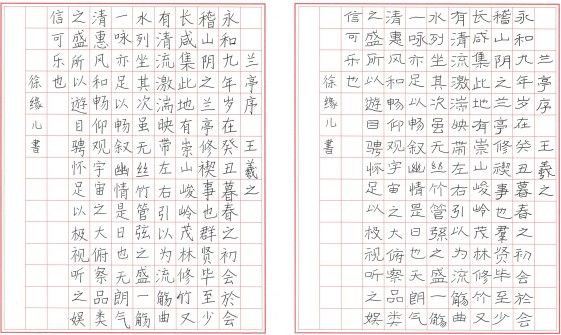 兰亭序 王羲之
永和九年岁在癸丑暮春之初会於会
稽山阴之兰亭修禊事也群贤毕至少
长咸集此地有崇山峻岭茂林修竹又
有清流激湍映带左右引以为流觞曲
水列坐其次虽无丝竹管弦之盛一觞
一咏亦足以畅叙幽情是日也天朗气
清惠风和畅仰观宇宙之大俯察品类
之盛所以遊目骋怀足以极视听之娱
信可乐也
徐缘儿書
兰亭序 王羲之
永和九年岁在癸丑暮春之初会於会
稽山阴之兰亭修禊事也羣贤毕至少
长咸集此地有崇山峻岭茂林修竹又
有清流激湍映带左右引以为流觞曲
水列坐其次虽无丝竹管弦之盛一觞
一咏亦足以畅叙幽情是日也天朗气
清惠风和畅仰观宇宙之大俯察品类
之盛所以遊目骋怀足以极视听之娱
信可乐也
徐缘儿書